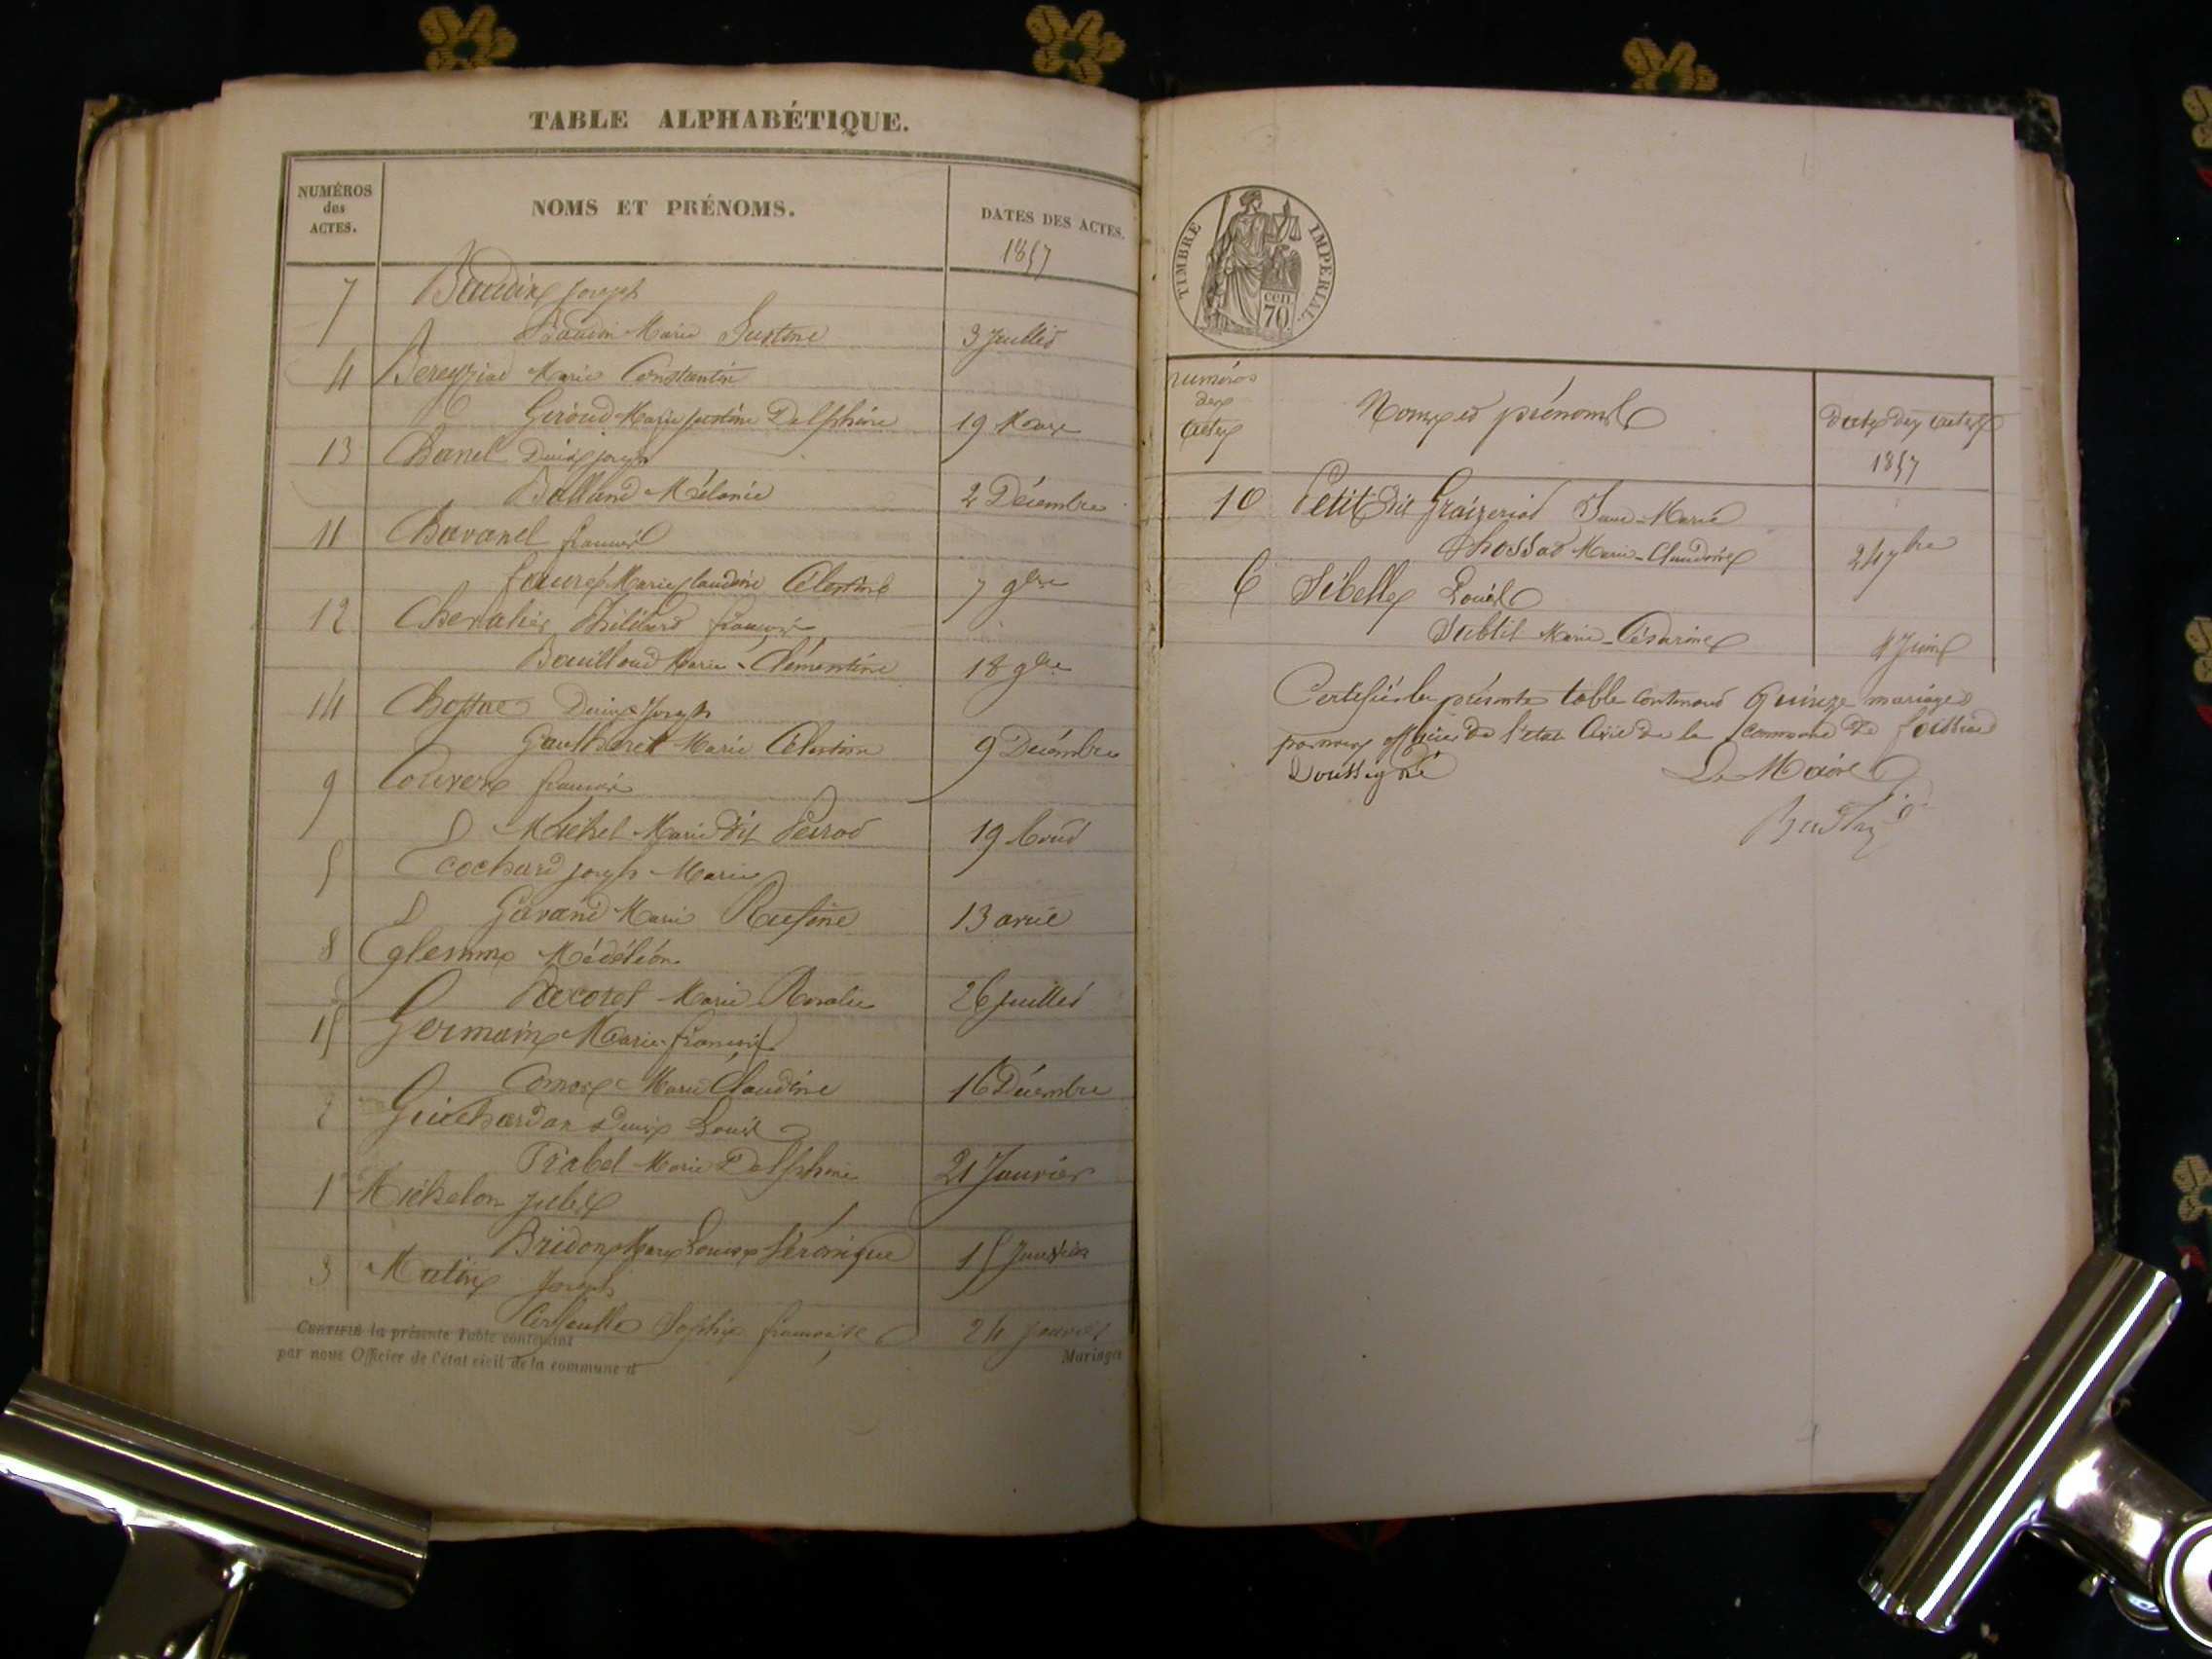 TABLE ALPHABÉTIQUE.
NUMÉROS des ACTES.
NOMS ET PRÉNOMS.
DATES DES ACTES.
1857
7 Baudin Joseph
Baudin Marie Justine 3 Juillet
4 Bereyziat Marie Constantin
Giroud Marie Justine Delphine 19 Mars
13 Chanel Denis Joseph
Balland Mélanie 2 Décembre
11 Chavanel françois
faure Marie Claudine Célestine 7 9bre
12 Chevalier Philibert françois
Bouilloud Marie-Clémentine 18 9bre
14 Chossat Denis Joseph
Gautheret Marie Célestine 9 Décembre
9 Couvert françois
Michel Marie dit Perrod 19 Aout
5 Ecochard Joseph Marie
Gavand Marie Rufine 13 avril
8 Eglemme
Pecoret Marie Rosalie 26 Juillet
15 Germain Marie-françois
Comas Marie Claudine 16 Décembre
2 Guichardan Denis Louis
Trabet Marie Delphine 21 Janvier
1 Michelon Jules
Bridon Marie Louise Véronique 15 Janvier
3 Matin Joseph
Sophie françoise 24 Janvier
CERTIFIÉ la présente Table contenant
Mariages
par nous Officier de l'état civil de la commune d
TIMBRE IMPERIAL.
cen. 70
numéros des actes
Noms et prénoms
dates des actes
1857
10 Petit dit Graizeriat Jean-Marie
Chossat Marie-Claudine 24 7bre
6 Sibelle Louis
Subtil Marie-Césarine 8 Juin
Certifié la présente table contenant quinze mariages
par nous officier de l'état Civil de la commune de foissiat
Soussigné Le Maire